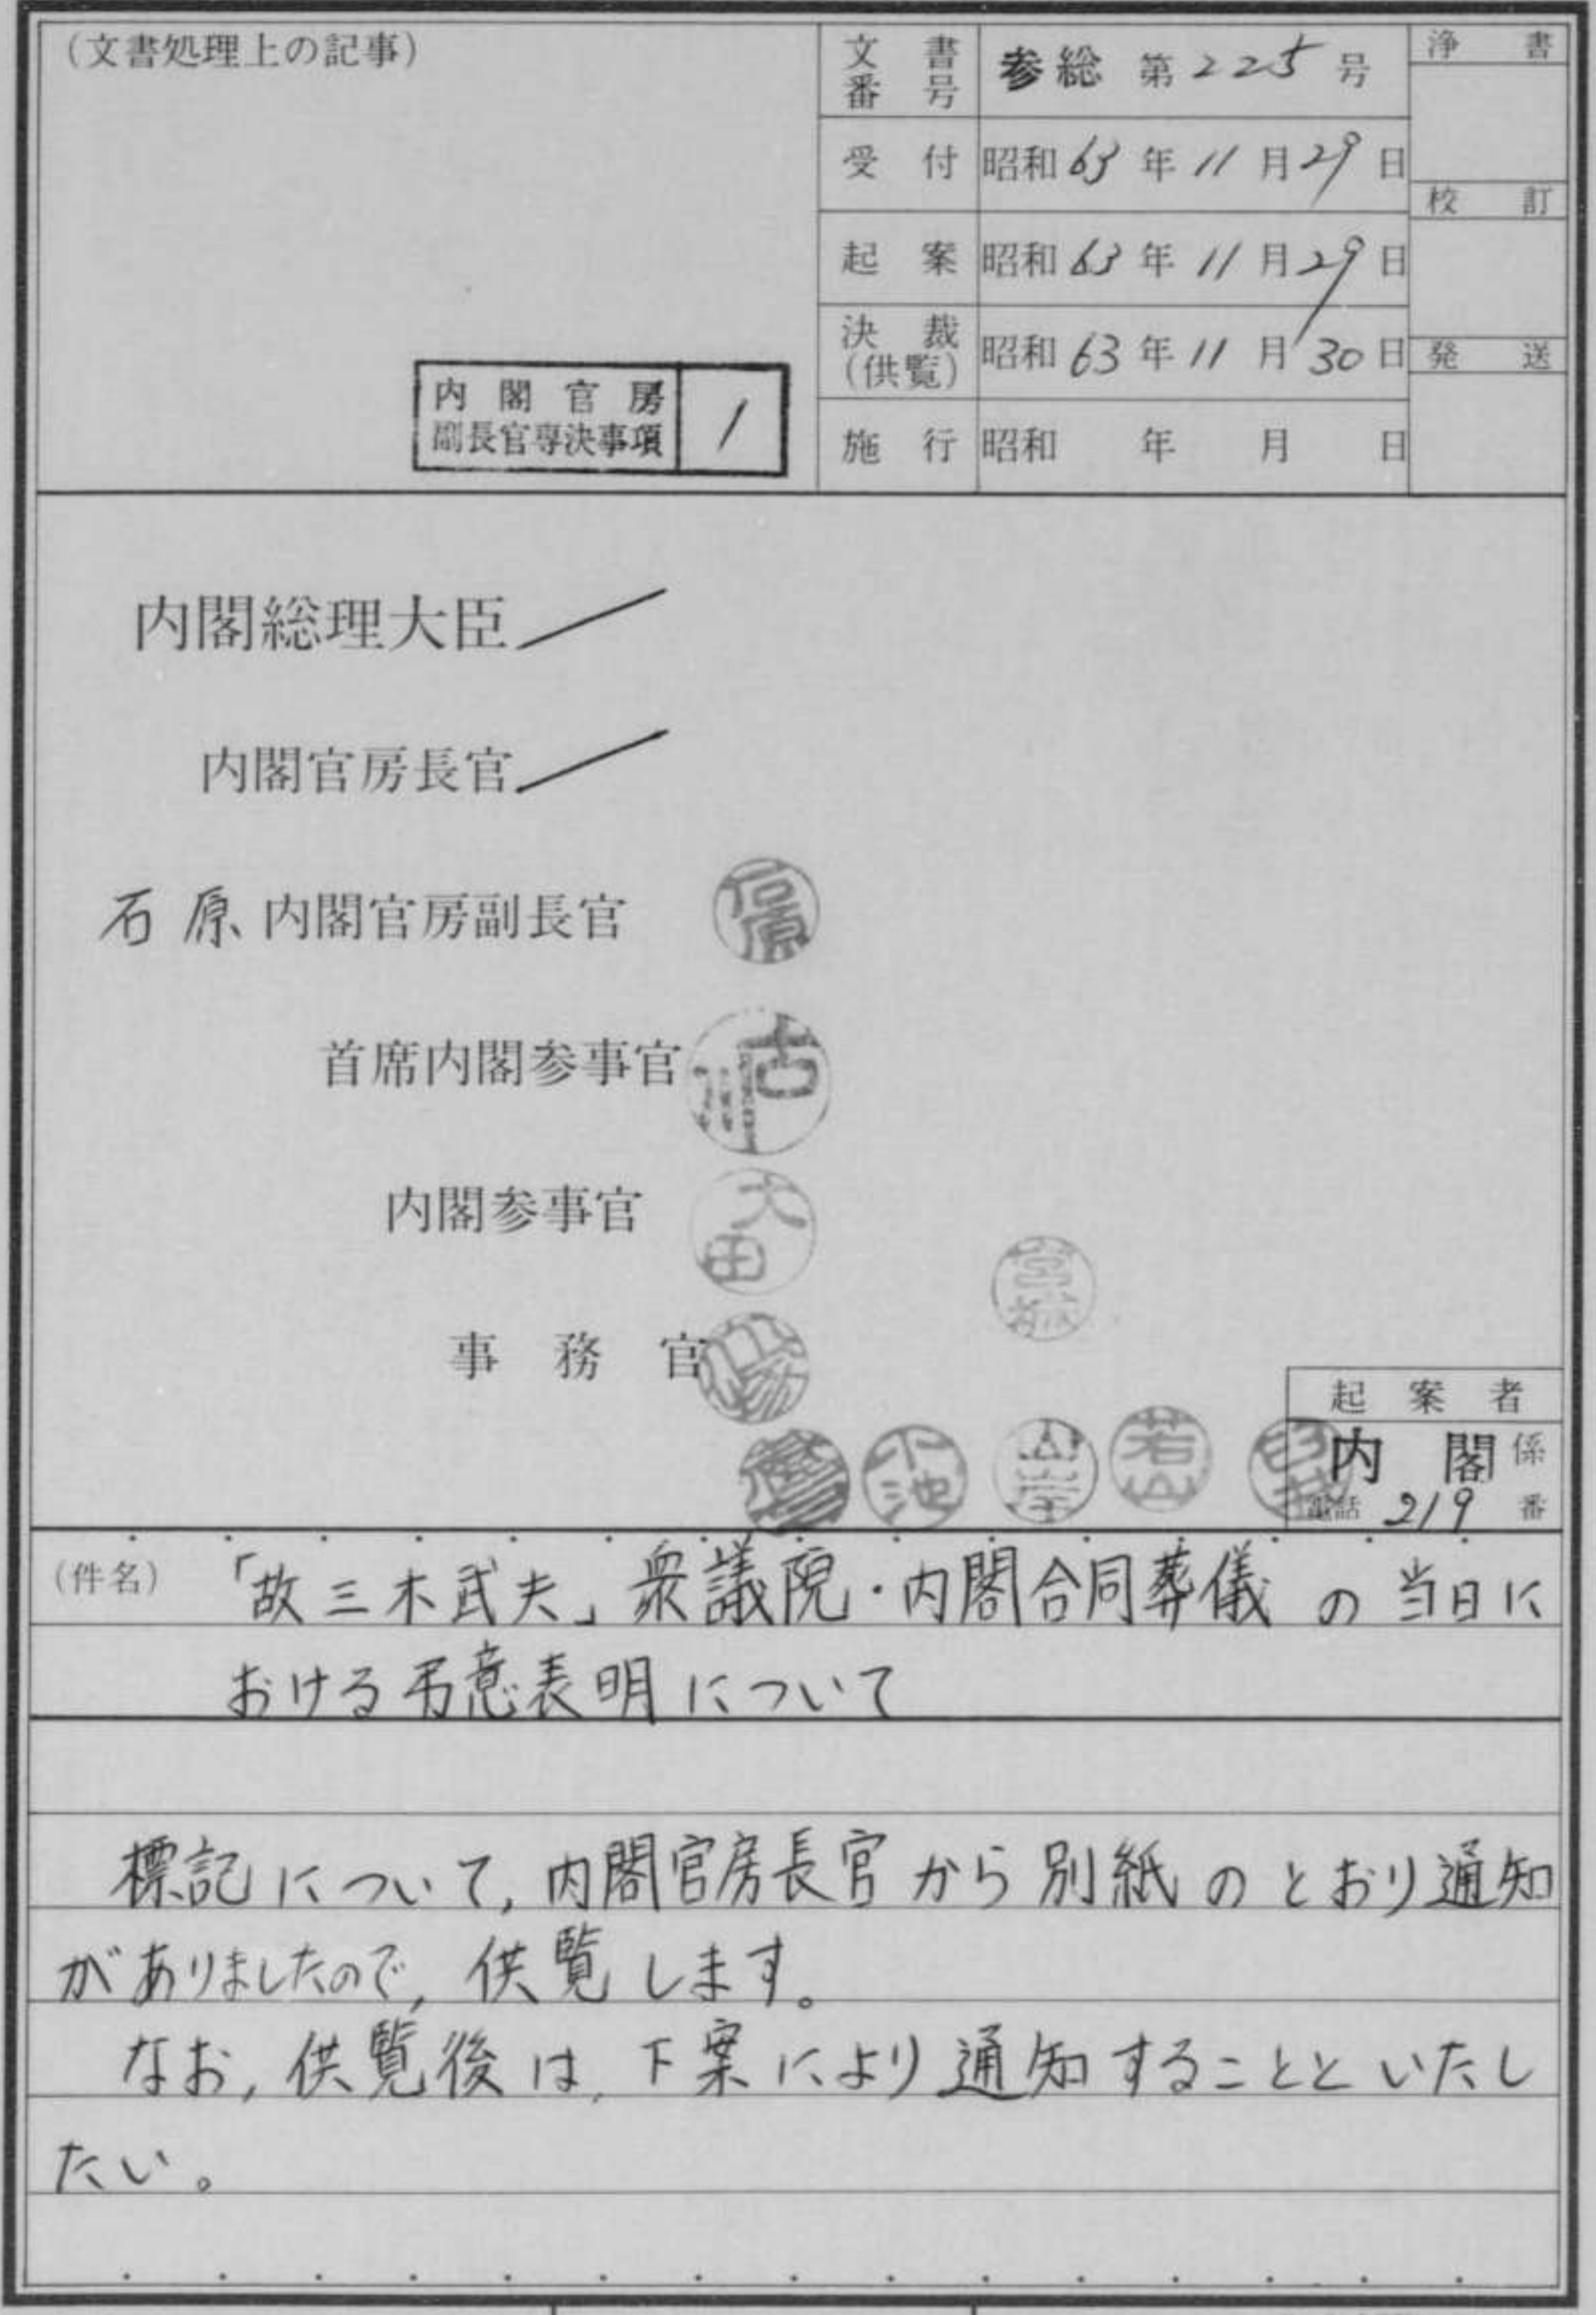 (文書処理上の記事)
文書番号 参総 第225号
受付 昭和63年11月29日
起案 昭和63年11月29日
決裁(供覧) 昭和63年11月30日
施行 昭和 年 月 日
浄書
校訂
発送
内閣官房
副長官専決事項 1
内閣総理大臣
内閣官房長官
石原 内閣官房副長官 石原
首席内閣参事官 古
内閣参事官 大田
宮城
事務官
小池 山岸 若山
起案者
内閣係
電話 219 番
(件名) 「故三木武夫」衆議院・内閣合同葬儀の当日に
おける弔意表明について
標記について,内閣官房長官から別紙のとおり通知
がありましたので,供覧します。
なお,供覧後は,下案により通知することといたし
たい。